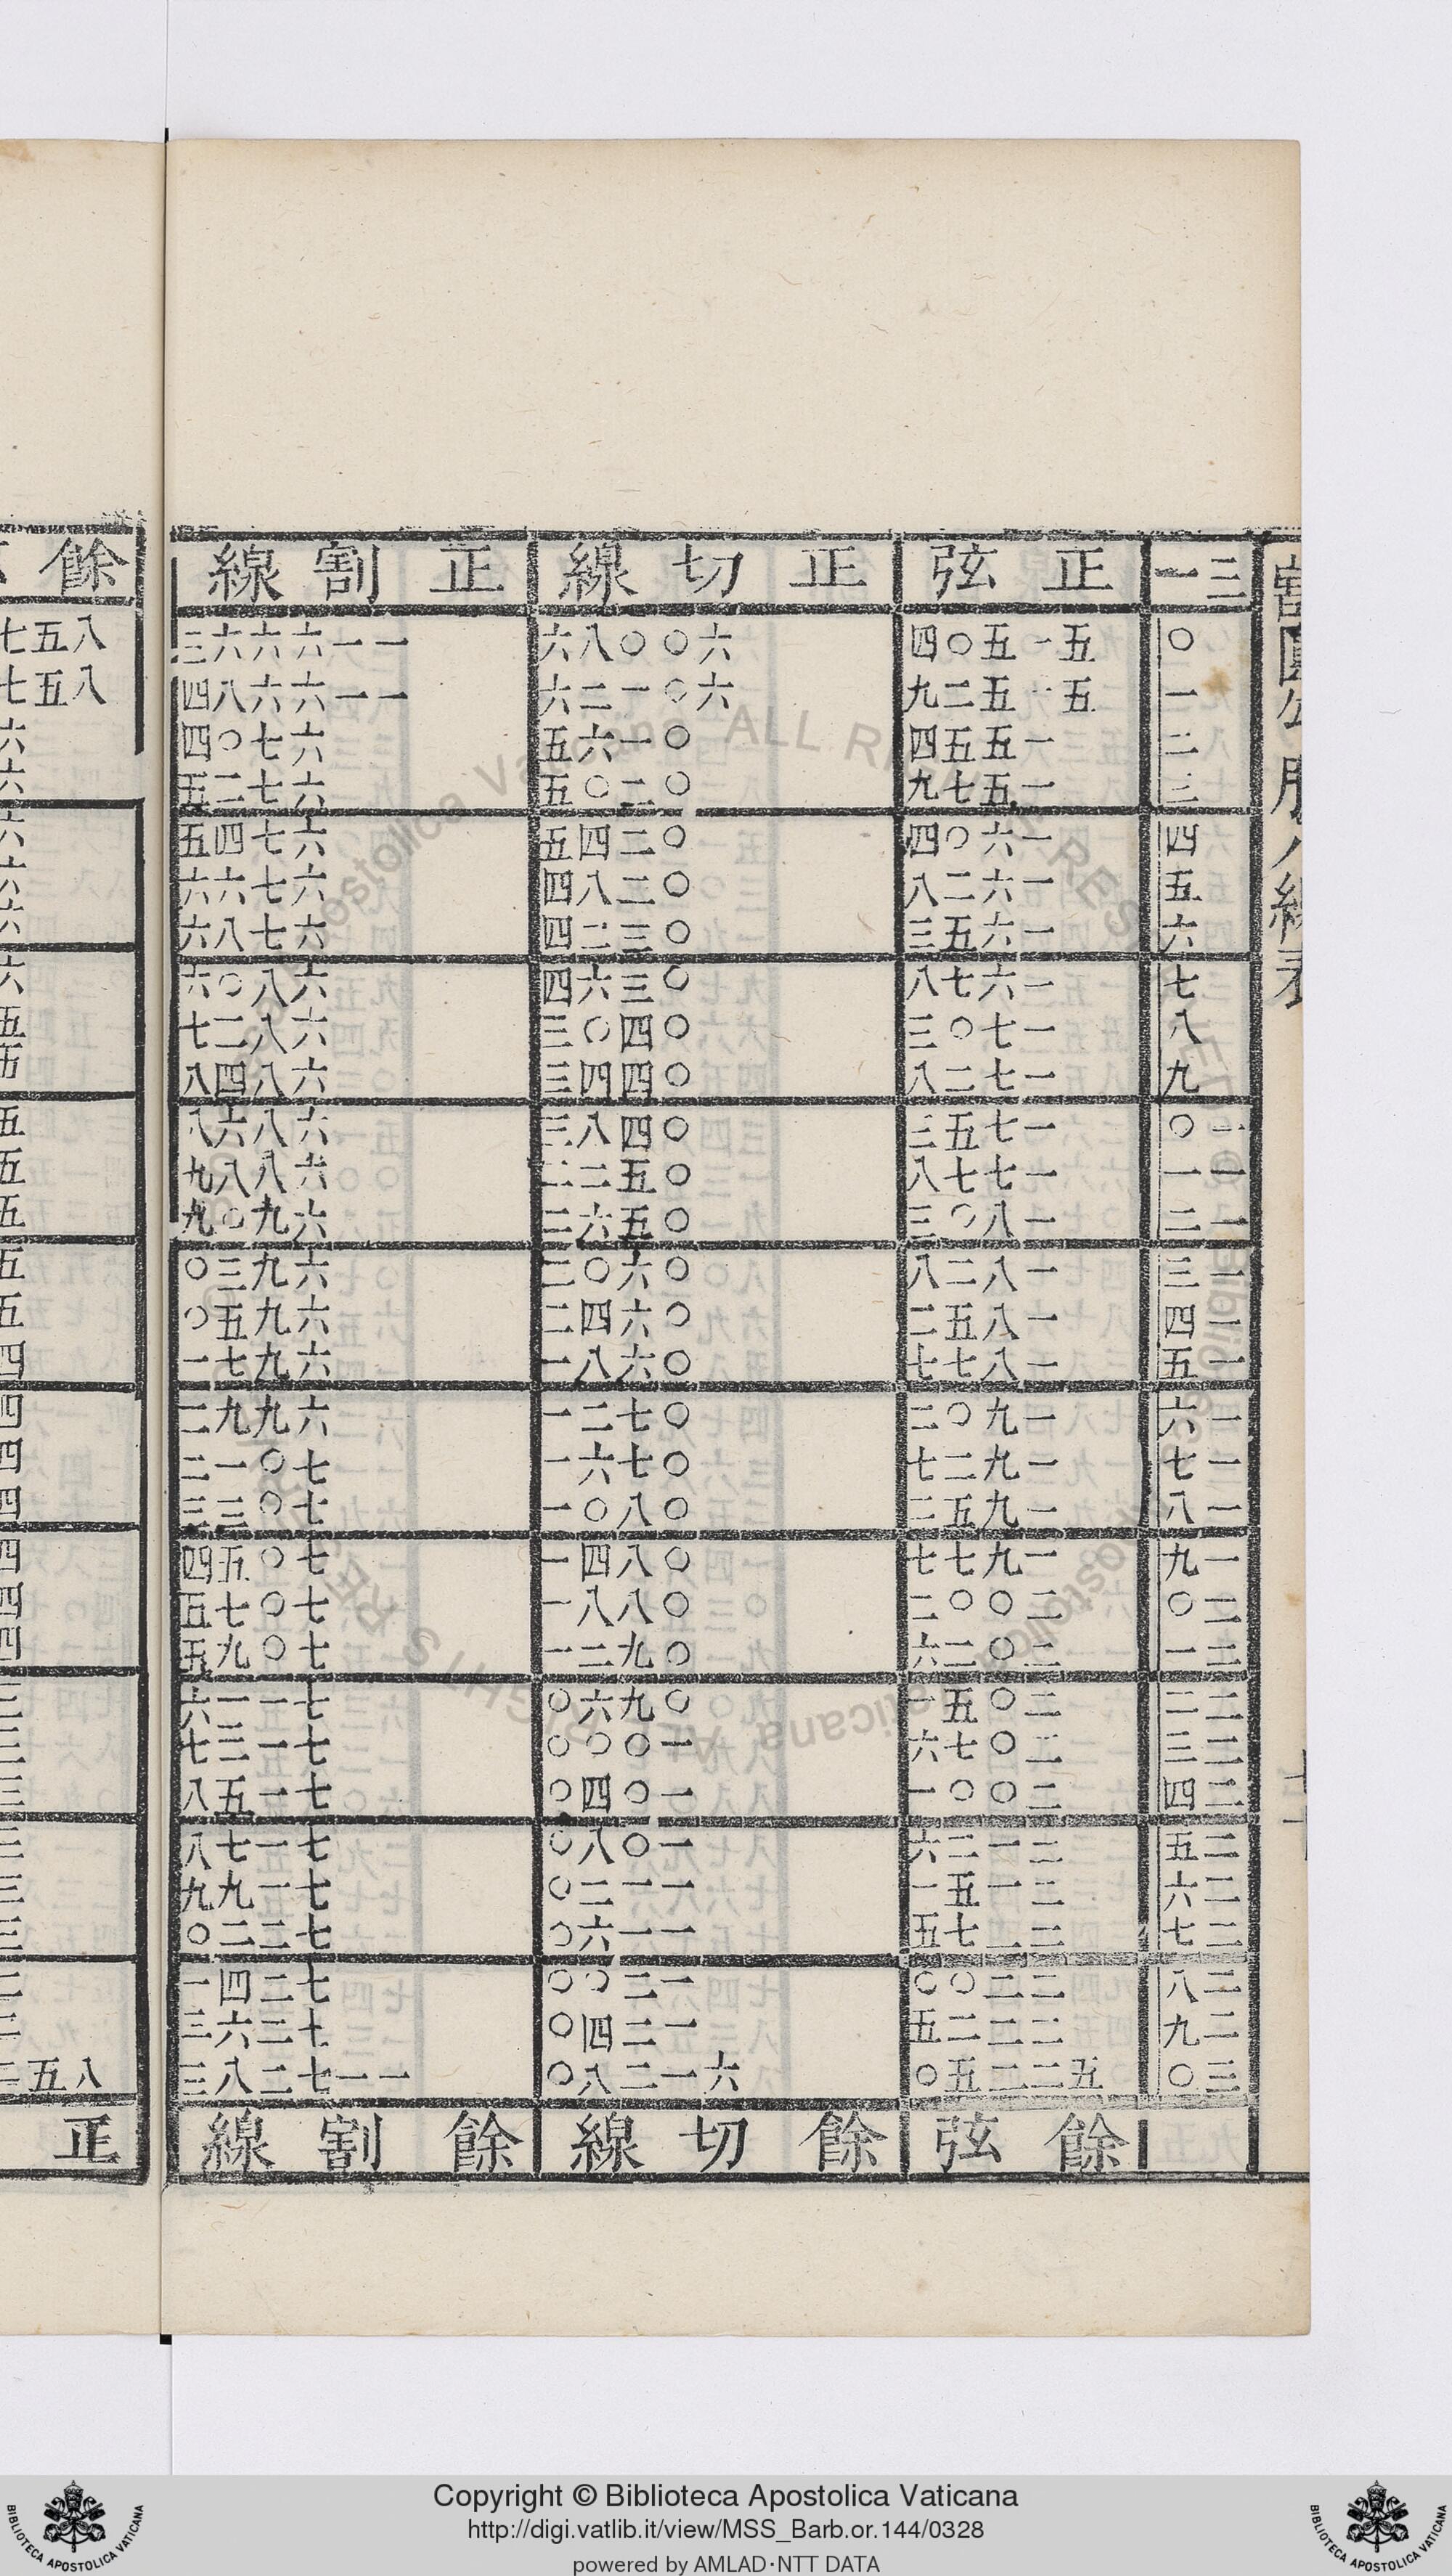 三一 正弦 正切線 正割線
〇 五一五〇四 六〇〇八六 一一六六六三
一 五一五二九 六〇一二六 一一六六八四
二 一五五四 〇一六五 六七〇四
三 一五七九 〇二〇五 六七二五
四 一六〇四 〇二四五 六七四五
五 一六二八 〇二八四 六七六六
六 一六五三 〇三二四 六七八六
七 一六七八 〇三六四 六八〇六
八 一七〇三 〇四〇三 六八二七
九 一七二八 〇四四三 六八四八
一〇 一七五三 〇四八三 六八六八
一一 一七七八 〇五二二 六八八九
一二 一八〇三 〇五六二 六九〇九
一三 一八二八 〇六〇二 六九三〇
一四 一八五二 〇六四二 六九五〇
一五 一八七七 〇六八一 六九七一
一六 一九〇二 〇七二一 六九九二
一七 一九二七 〇七六一 七〇一二
一八 一九五二 〇八〇一 七〇三三
一九 一九七七 〇八四一 七〇五四
二〇 二〇〇二 〇八八一 七〇七五
二一 二〇二六 〇九二一 七〇九五
二二 二〇五一 〇九六〇 七一一六
二三 二〇七六 一〇〇〇 七一三七
二四 二〇〇一 一〇四〇 七一五八
二五 二一二六 一〇八〇 七一七八
二六 二一五一 一一二〇 七一九九
二七 二一七五 一一六〇 七二二〇
二八 二二〇〇 一二〇〇 七二四一
二九 二二二五 一二四〇 七二六三
三〇 五二二五〇 六一二八〇 一一七二八三
餘弦 餘切線 餘割線
餘
八五七
八五七
正
Copyright © Biblioteca Apostolica Vaticana
http://digi.vatlib.it/view/MSS_Barb.or.144/0328
powered by AMLAD·NTT DATA